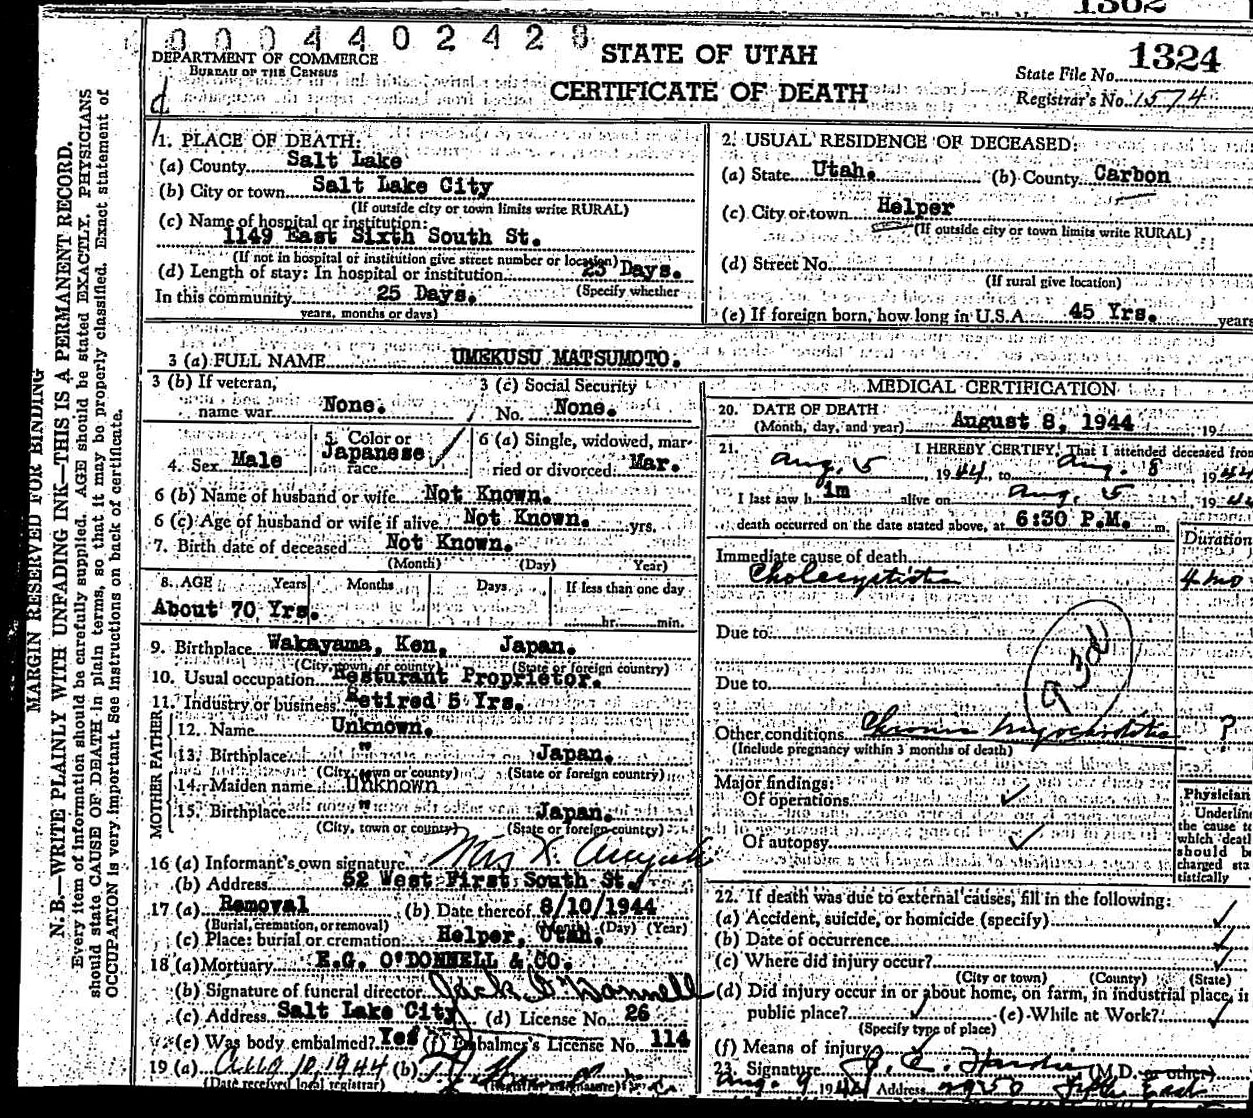 1362
0 0 0 4 4 0 2 4 2 8
DEPARTMENT OF COMMERCE
BUREAU OF THE CENSUS
STATE OF UTAH
CERTIFICATE OF DEATH
State File No. 1324
Registrar's No. 1574
MARGIN RESERVED FOR BINDING
N. B.—WRITE PLAINLY WITH UNFADING INK—THIS IS A PERMANENT RECORD.
Every item of information should be carefully supplied. AGE should be stated EXACTLY. PHYSICIANS
should state CAUSE OF DEATH in plain terms, so that it may be properly classified. Exact statement of
OCCUPATION is very important. See instructions on back of certificate.
1. PLACE OF DEATH:
(a) County Salt Lake
(b) City or town Salt Lake City
(If outside city or town limits write RURAL)
(c) Name of hospital or institution:
1149 East Sixth South St.
(If not in hospital or institution give street number or location)
(d) Length of stay: In hospital or institution 25 Days.
(Specify whether
In this community 25 Days.
years, months or days)
2. USUAL RESIDENCE OF DECEASED:
(a) State Utah. (b) County Carbon
(c) City or town Helper
(If outside city or town limits write RURAL)
(d) Street No.
(If rural give location)
(e) If foreign born, how long in U.S.A. 45 Yrs. years
3 (a) FULL NAME UMEKUSU MATSUMOTO.
3 (b) If veteran,
name war None.
3 (c) Social Security
No. None.
4. Sex Male
5. Color or
race Japanese
6 (a) Single, widowed, mar-
ried or divorced Mar.
6 (b) Name of husband or wife Not Known.
6 (c) Age of husband or wife if alive Not Known. yrs.
7. Birth date of deceased Not Known.
(Month) (Day) Year)
8. AGE Years Months Days If less than one day
About 70 Yrs. hr. min.
9. Birthplace Wakayama, Ken, Japan.
(City, town, or county) (State or foreign country)
10. Usual occupation Resturant Proprietor.
11. Industry or business Retired 5 Yrs.
FATHER
12. Name Unknown.
13. Birthplace " Japan.
(City, town or county) (State or foreign country)
MOTHER
14. Maiden name Unknown
15. Birthplace " Japan.
(City, town or county) (State or foreign country)
16 (a) Informant's own signature Mrs
(b) Address 52 West First South St.
17 (a) Removal (b) Date thereof 8/10/1944
(Burial, cremation, or removal) (Month) (Day) (Year)
(c) Place: burial or cremation Helper, Utah.
18 (a) Mortuary E.G. O'DONNELL & CO.
(b) Signature of funeral director Jack O'Donnell
(c) Address Salt Lake City (d) License No. 26
(e) Was body embalmed? Yes (f) Embalmer's License No. 114
19 (a) Aug 10, 1944 (b)
(Date received local registrar) (Registrar's signature)
MEDICAL CERTIFICATION
20. DATE OF DEATH
(Month, day, and year) August 8, 1944 19
21. I HEREBY CERTIFY, That I attended deceased from
Aug. 5, 1944, to Aug. 8, 1944
I last saw him alive on Aug. 5 1944
death occurred on the date stated above, at 6:30 P.M. m.
Duration
Immediate cause of death
Cholecystitis 4 mo
Due to
Due to
93d
Other conditions Chronic Myocarditis ?
(Include pregnancy within 3 months of death)
Major findings:
Of operations
Of autopsy
Physician
Underline
the cause to
which death
should be
charged sta-
tistically
22. If death was due to external causes, fill in the following:
(a) Accident, suicide, or homicide (specify)
(b) Date of occurrence
(c) Where did injury occur?
(City or town) (County) (State)
(d) Did injury occur in or about home, on farm, in industrial place, in
public place? (e) While at Work?
(Specify type of place)
(f) Means of injury
23. Signature J. C. (M.D. or other)
Aug. 9 1944 Address 2950 Fifth East